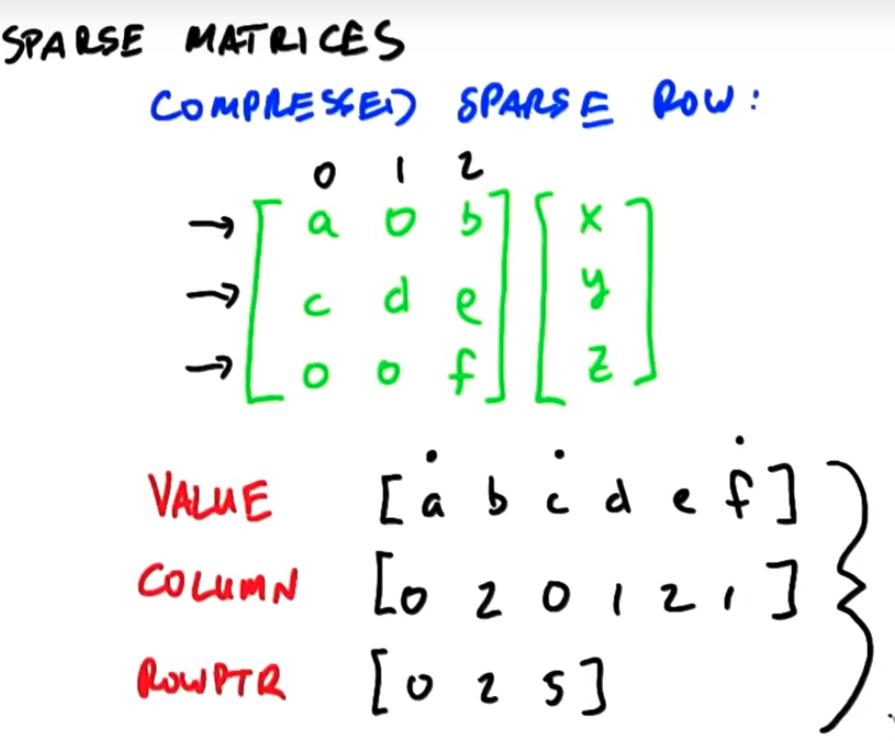 SPARSE MATRICES
COMPRESSED SPARSE ROW:
0 1 2
→ [ a 0 b ] [ x ]
→ [ c d e ] [ y ]
→ [ 0 0 f ] [ z ]
VALUE [ a b c d e f ]
COLUMN [ 0 2 0 1 2 1 ]
ROWPTR [ 0 2 5 ]